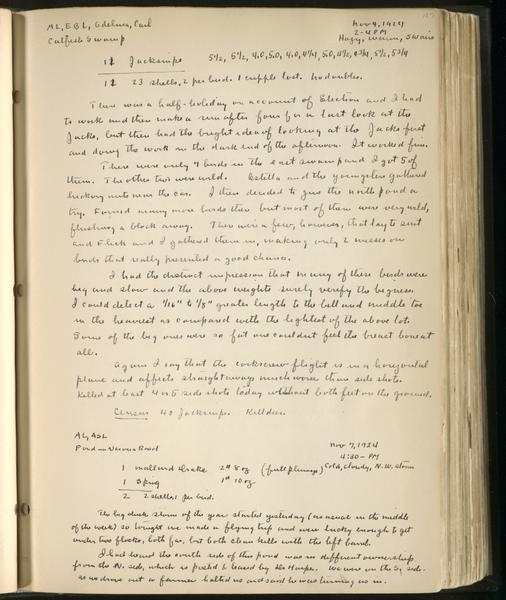 AL, EBL, Adelina, Carl
Nov 4, 1924
Catfish Swamp
2-4 PM
Hazy, warm, S wind
12 Jacksnipe 5½, 5½, 4.0, 5.0, 4.0, 4¾, 5.0, 4½, 4¾, 5½, 5¾
12 23 shells, 2 per bird. 1 cripple lost. No doubles.
There was a half-holiday on account of Election and I had
to work and then make a run after four for a last look at the
Jacks, but then had the bright idea of looking at the Jacks first
and doing the work in the dark end of the afternoon. It worked fine.
There were only 7 birds in the east swamp and I got 5 of
them. The other two were wild. Estella and the youngsters gathered
hickory nuts near the car. I then decided to give the north pond a
try. Found many more birds there but most of them were very wild,
flushing a block away. There were a few, however, that lay to suit
and Flick and I gathered them in, making only 2 misses on
birds that really presented a good chance.
I had the distinct impression that many of these birds were
big and slow and the above weights surely verify the bigness.
I could detect a 1/16" to 1/8" greater length to the bill and middle toe
in the heaviest as compared with the lightest of the above lot.
Some of the big ones were so fat one couldnt feel the breast bone at
all.
Again I say that the corkscrew flight is in a horizontal
plane and affects straightaways much worse than side shots.
Killed at least 4 or 5 side shots today without both feet on the ground.
Census 40 Jacksnipe. Killdeer.
AL, ASL
Nov 7, 1924
Pond on Verona Road
4:30- PM
1 mallard drake 2# 8 oz (full plumage) Cold, cloudy, N.W. storm
1 Sprig 1# 10 oz
2 2 shells, 1 per bird.
The big duck storm of the year started yesterday (as usual in the middle
of the week) so tonight we made a flying trip and were lucky enough to get
under two flocks, both far, but both clean kills with the left barrel.
I had heard the south side of this pond was in different ownership
from the N. side, which is posted & leased by We were on the S. side.
as we drove out a farmer halted us and said he was turning us in.